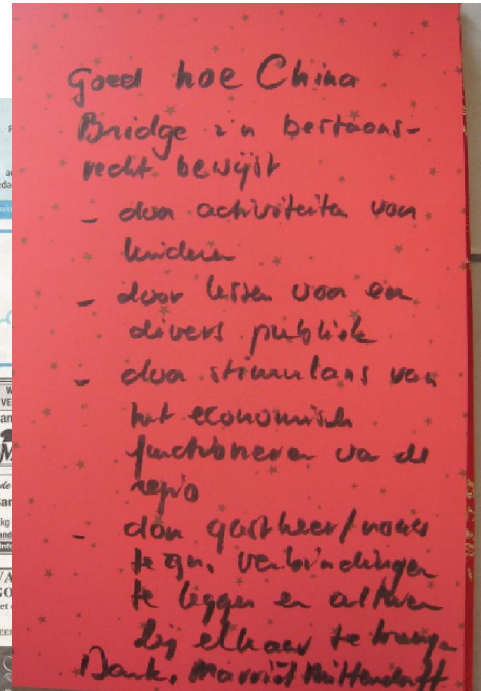 Goed hoe China
Bridge z'n bestaans-
recht bewijst
- door activiteiten voor
kinderen
- door lessen voor een
divers publiek
- door stimulans van
het economisch
functioneren van de
regio
- door gastheer/vrouw
te zijn, verbindingen
te leggen en culturen
bij elkaar te brengen
Dank, Marriët Mittendorff